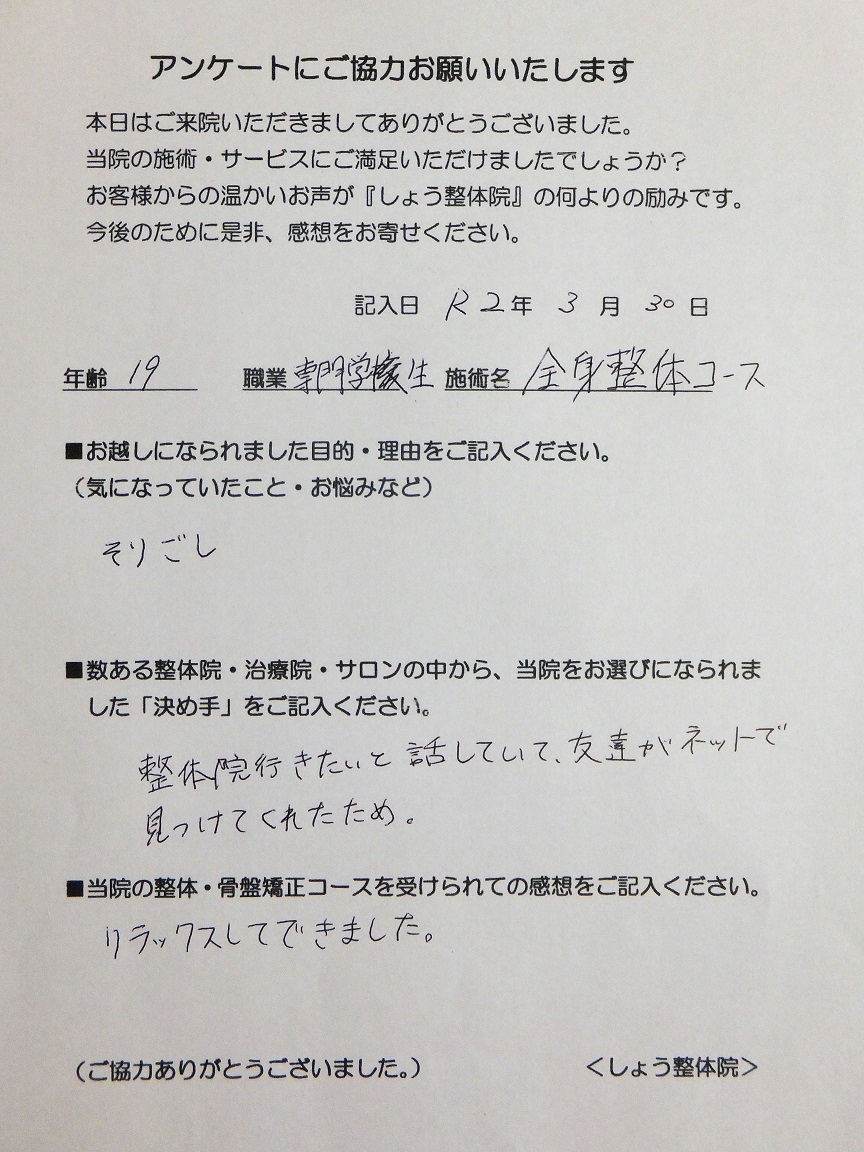 アンケートにご協力お願いいたします
本日はご来院いただきましてありがとうございました。
当院の施術・サービスにご満足いただけましたでしょうか？
お客様からの温かいお声が『しょう整体院』の何よりの励みです。
今後のために是非、感想をお寄せください。
記入日 R2年 3月 30日
年齢 19 職業 専門学校生 施術名 全身整体コース
■お越しになられました目的・理由をご記入ください。
（気になっていたこと・お悩みなど）
そりごし
■数ある整体院・治療院・サロンの中から、当院をお選びになられま
した「決め手」をご記入ください。
整体院行きたいと話していて、友達がネットで
見つけてくれたため。
■当院の整体・骨盤矯正コースを受けられての感想をご記入ください。
リラックスしてできました。
（ご協力ありがとうございました。） ＜しょう整体院＞